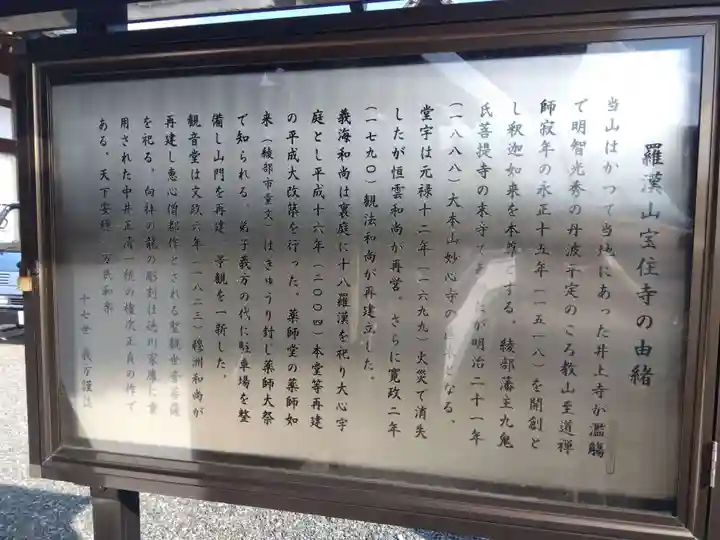 羅漢山宝住寺の由緒
当山はかつて当地にあった井上寺が濫觴
で明智光秀の丹波平定のころ教山至道禅
師寂年の永正十五年(一五一八)を開創と
し釈迦如来を本尊とする。綾部藩主九鬼
氏菩提寺の末寺で が明治二十一年
(一八八八)大本山妙心寺の となる。
堂宇は元禄十二年(一六九九)火災で消失
したが恒雲和尚が再営。さらに寛政二年
(一七九〇)観法和尚が再建立した。
義海和尚は裏庭に十八羅漢を祀り大心字
庭とし平成十六年(二〇〇四)本堂等再建
の平成大改築を行った。薬師堂の薬師如
来(綾部市重文)はきゅうり封じ薬師大祭
で知られる。弟子義方の代に駐車場を整
備し山門を再建、景観を一新した。
観音堂は文政六年(一八二三)穆洲和尚が
再建し恵心僧都作とされる聖観世音菩薩
を祀る。向拝の龍の彫刻は徳川家康に重
用された中井正清一統の権次正貞の作で
ある。天下安穏 万民和楽
十七世 義方謹誌